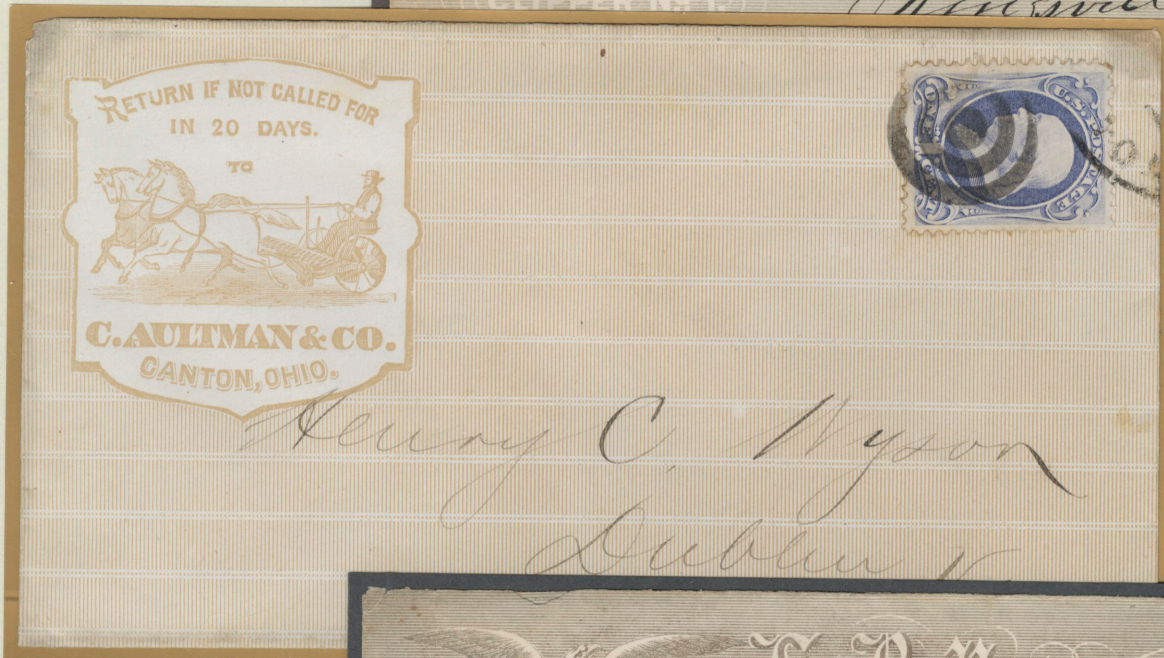 CLIPPER N.Y.
RETURN IF NOT CALLED FOR
IN 20 DAYS.
TO
C. AULTMAN & CO.
CANTON, OHIO.
U.S. POSTAGE
ONE CENT
Henry C. Wyson
Dublin